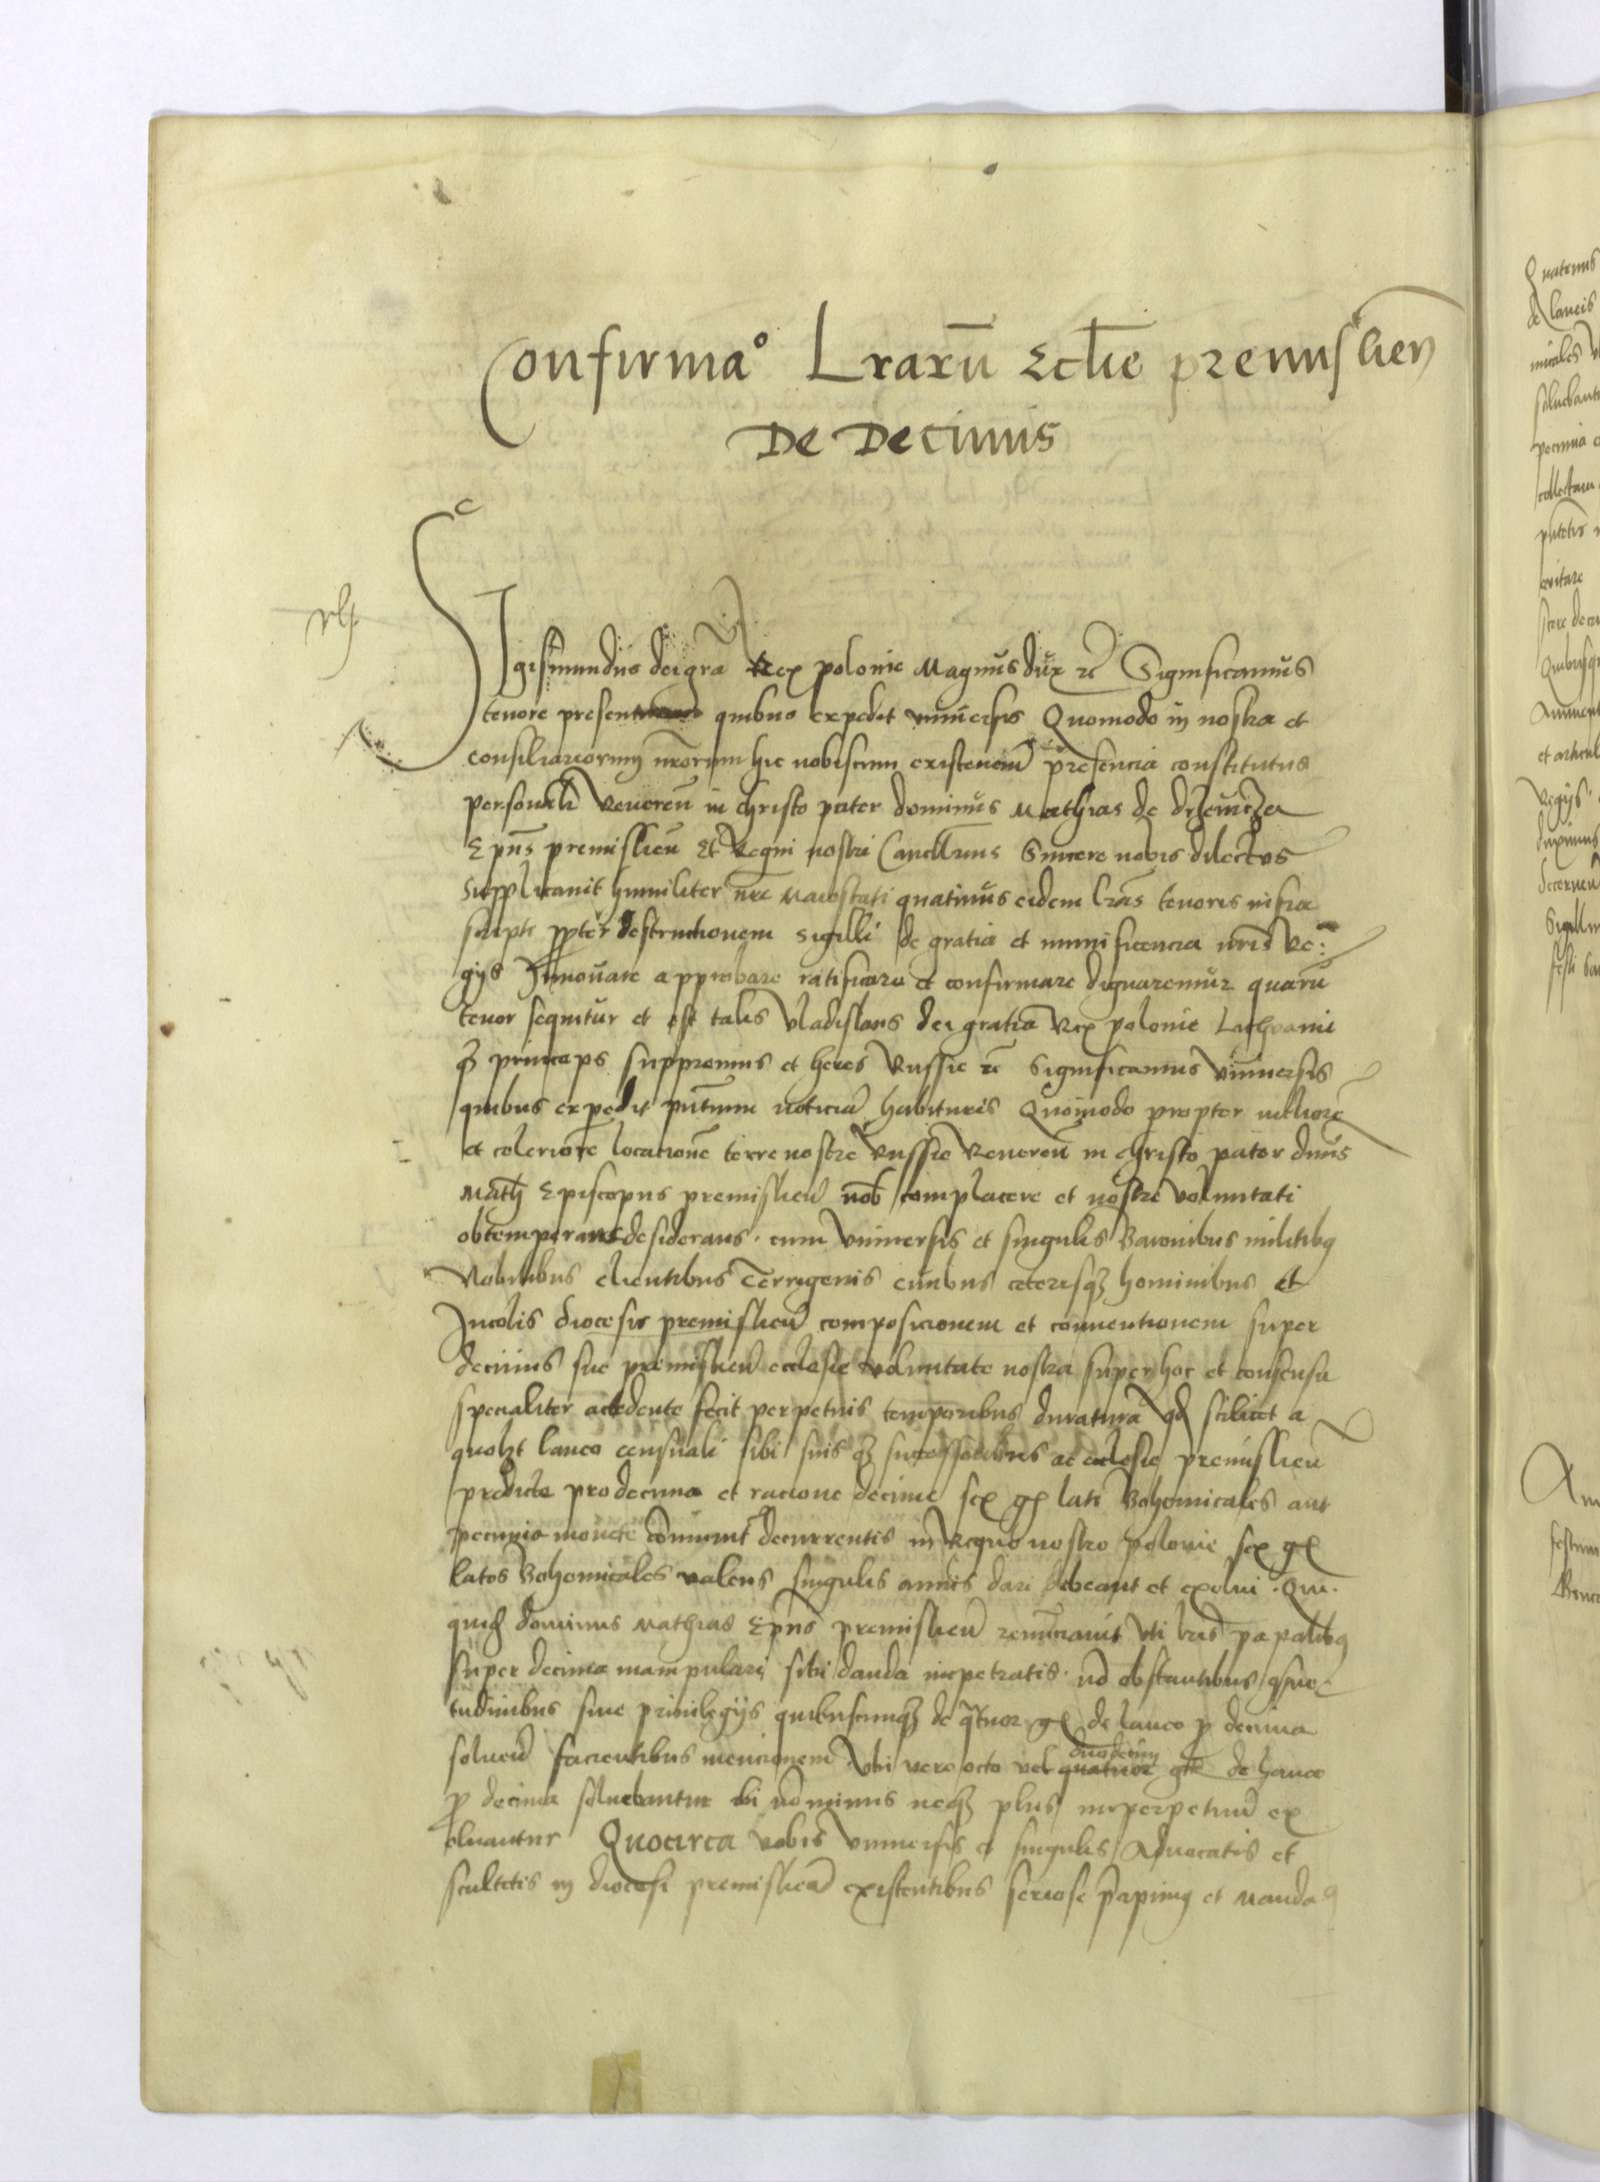 Confirmaº Lrarū Ecclie premislien̄
De Decimis
Sigismundus dei gr̄a Rex polonie Magnus dux rc̄ Significamus
tenore presen quibus expedit universis Quomodo in nostra et
consiliariorum nr̄orum hic nobiscum existencium presencia constitutus
personalr̄ Reveren̄ in christo pater dominus Mathias de drzewicza
Ep̄us premislien̄ Et Regni nostri Cancellarius Sincere nobis dilectus
Supplicavit humiliter nr̄e Maiestati quatinus eidem lr̄as tenoris infra
scripti propter destructionem sigilli de gratia et munificencia nr̄is Re-
gys Innovare approbare ratificare et confirmare dignaremur quarū
tenor sequitur et est talis Vladislaus dei gratia Rex polonie Lithvanie
qz princeps suppremus et heres Russie rc̄ Significamus Universis
quibus expedit pn̄tium noticiā habituris Quomodo propter meliorē
et celeriorē locationē terre nostre Russie Reveren̄ in christo pater dn̄us
Math̄ Episcopus premislien̄ nob̄ complacere et nostre voluntati
obtemperare desiderans cum Universis et singulis Baronibus militibg
Nobilibus clientibus Terrigenis civibus ceterisqz hominibus et
Incolis diocesis premislien̄ composicionem et conventionem super
decimis sue premislien̄ ecclesie voluntate nostra super hoc et consensu
specialiter accedente fecit perpetuis temporibus duraturā qd̄ scilicet a
quolzt laneo censuali sibi suis qz successoribus ac ecclesie premislien̄
predicte pro decima et racione decime sex gr̄ lati Bohemicales aut
pecunia monete comunit̄ decurrentis in Regno nostro polonie sex gr̄
latos Bohemicales valens singulis annis dari debeant et exolvi Qui
quid̄ dominus Mathias Ep̄us premislien̄ renunciavit Uti lr̄is papalibg
super decima manipulari sibi danda impetratis nō obstantibus gsue-
tudinibus sive privilegys quibuscumqz de qtuor gr̄ de laneo p̄ decima
solven̄ facientibus mencionem Ubi vero octo vel quatuor duodecim gr̄ de laneo
p̄ decima solvebantur ibi nō minus neqz plus imperpetuū ex
olvantur Quocirca vobis Universis et singulis Advocatis et
scultetis in diocesi premislien̄ existentibus seriose p̄cipimg et manda